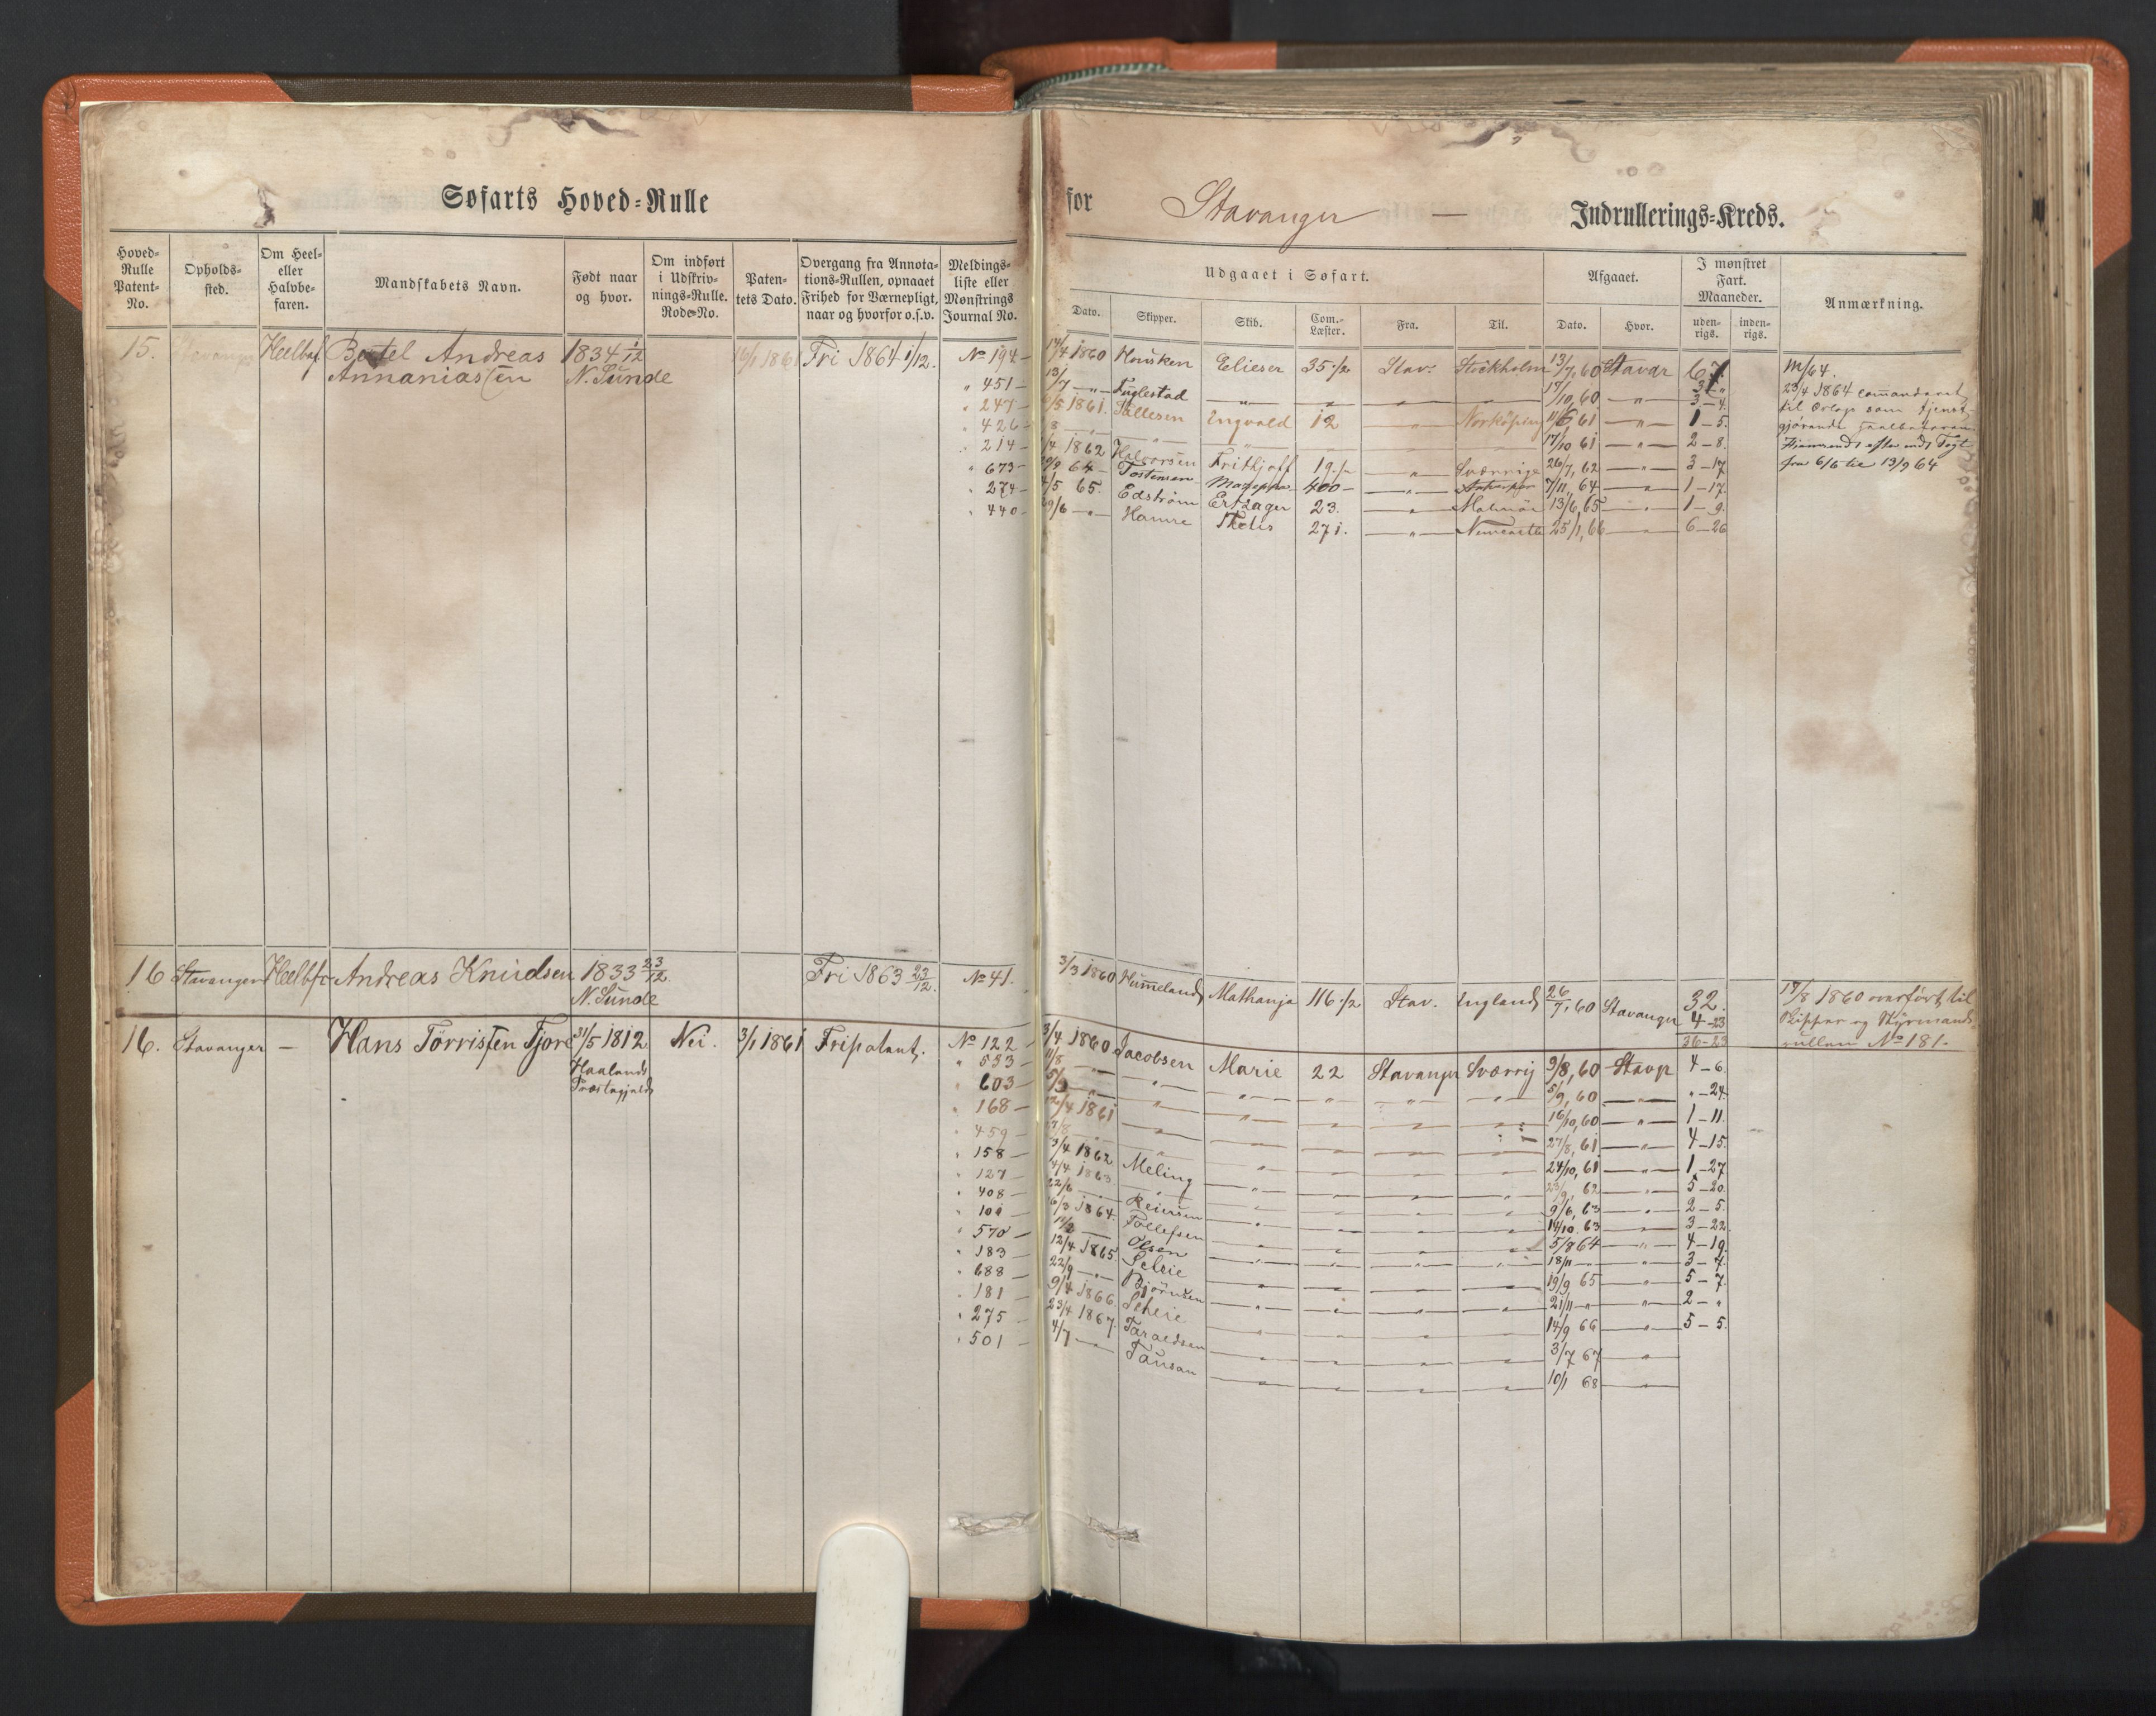 Søfarts Hoved-Rulle for Stavanger — Indrullerings-Kreds.
Hoved-Rulle Patent-No.
Opholds-sted.
Om Heel- eller Halvbe-faren.
Mandskabets Navn.
Født naar og hvor.
Om indført i Udskriv-nings-Rulle. Rode-No.
Paten-tets Dato.
Overgang fra Annota-tions-Rullen, opnaaet Frihed for Værnepligt, naar og hvorfor o.s.v.
Meldings-liste eller Mønstrings Journal No.
Udgaaet i Søfart.
Dato. Skipper. Skib. Com.-Læster. Fra. Til.
Afgaaet.
Dato. Hvor.
I mønstret Fart. Maaneder.
uden-rigs. inden-rigs.
Anmærkning.
15. Stavanger Heelbef. Bertel Andreas 1834 1/12 16/1 1861 Fri 1864 1/12. No 194 — 14/4 1860 Housken Elieser 35 1/2 Stav. Stockholm 13/7, 60 Stavar 67
Annaniassen N. Sunde
" 451 — 13/7 — " — Fuglestad — " — 17/10, 60 — " — 3 — "
" 247 — 1861. Tallesen Engvald 12 — " — Norköping 11/6 61 — " — 3 — 4.
" 426 — 8 — " — 17/10 61 — " — 1 — 5.
" 214 — 1862 Halvorsen Frithjoff 19. — " — Sværrige 26/7, 62 — " — 2 — 8.
" 673 — 64 — Tostensen Mazeppa 400 — — " — 7/11, 64 — " — 3 — 17
" 274 — 65. Edström Ertzager 23. — " — Malmöe 13/6, 65 — " — 1 — 17.
" 440 — 29/6 — " — Hamre Thetis 271. — " — Newcastle 25/1, 66 — 1 — 9.
6 — 26
M/64.
23/4 1864 commanderet
til Orlogs som tjenst-
gjørende
fra 6/6 til 13/9 64
16 Stavanger Heelbf. Andreas Knudsen 1833 23/12 Fri 1863 23/12. No 41. 3/3 1860 Hummeland Mathanja 116 1/2 Stav. England 26/7, 60 Stavanger 32.
N. Sunde
4 — 23
36 — 23
17/8 1860 overført til
Skipper og Styrmands-
rullen No 181.
16. Stavanger — Hans Törrissen Tjore 31/5 1812 Nei. 3/1 1861 Fripatent. No 122 3/4 1860 Jacobsen Marie 22 Stavanger Sværrig 9/8, 60 Stavgr 4 — 6.
Haalands
Præstegjeld
" 533 — 11/8 — " — 5/9, 60 — " — " — 24.
" 603 — 5/9 — " — 16/10, 60 — " — 1 — 11.
" 168 — 12/4 1861 — 27/8, 61 — " — 4 — 15.
" 459 — 27/8 — " — 24/10, 61 — " — 1 — 27.
" 158 — 3/4 1862 Meling — " — 23/9, 62 — " — 5 — 20.
" 127 — 4/4 1863 — " — 9/6, 63 — " — 2 — 5.
" 408 — 22/6 — " — Reiersen — " — 14/10 63 — " — 3 — 22.
" 101 — 16/3 1864. Tollefsen — " — 5/8 64 — " — 4 — 19.
" 570 — Olsen — " — 18/11 — " — 3 — 4.
" 183 — 12/4 1865 Scheie — " — 19/9 65 — " — 5 — 7.
" 688 — 22/9 — " — Björnsen — " — 21/11 — " — 2 — "
" 181 — 9/4 1866. Scheie — " — 14/9 66 — " — 5 — 5.
" 275 — 23/4 1867. Taraldsen — " — 3/7 67 — " —
" 501 — 4/7 — Tausan — " — 10/1 68 — " —